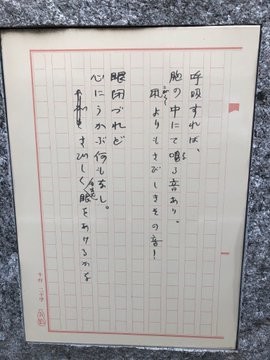 呼吸すれば、
胸の中にて鳴る音あり。
凩よりもさびしきその音!
眼閉づれど
心にうかぶ何もなし。
さびしくもまた眼をあけるかな